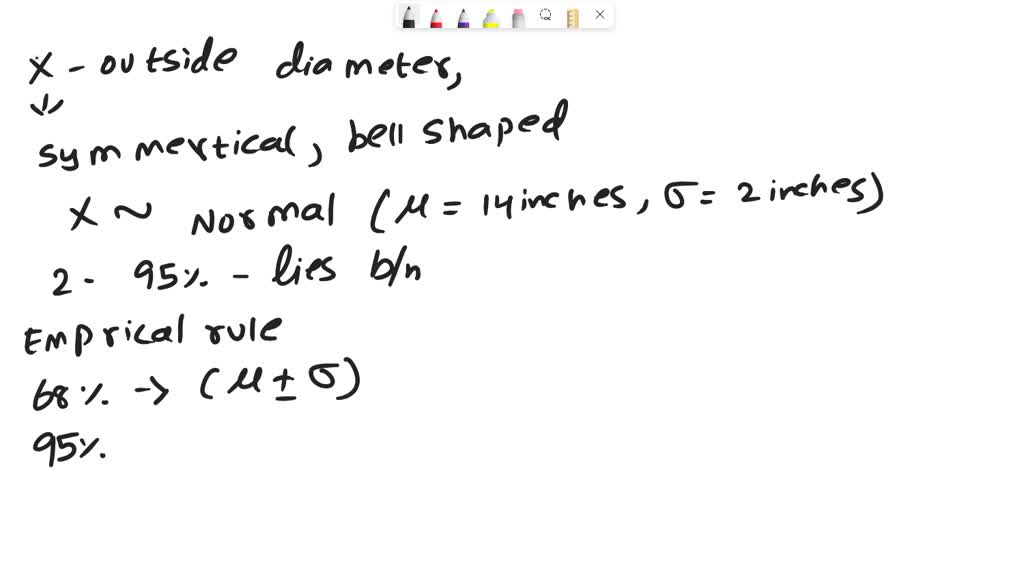 X - outside diameter,
symmertical, bell shaped
X ~ Normal (μ = 14 inches, σ = 2 inches)
2 - 95% - lies b/n
Emprical rule
68% → (μ ± σ)
95%